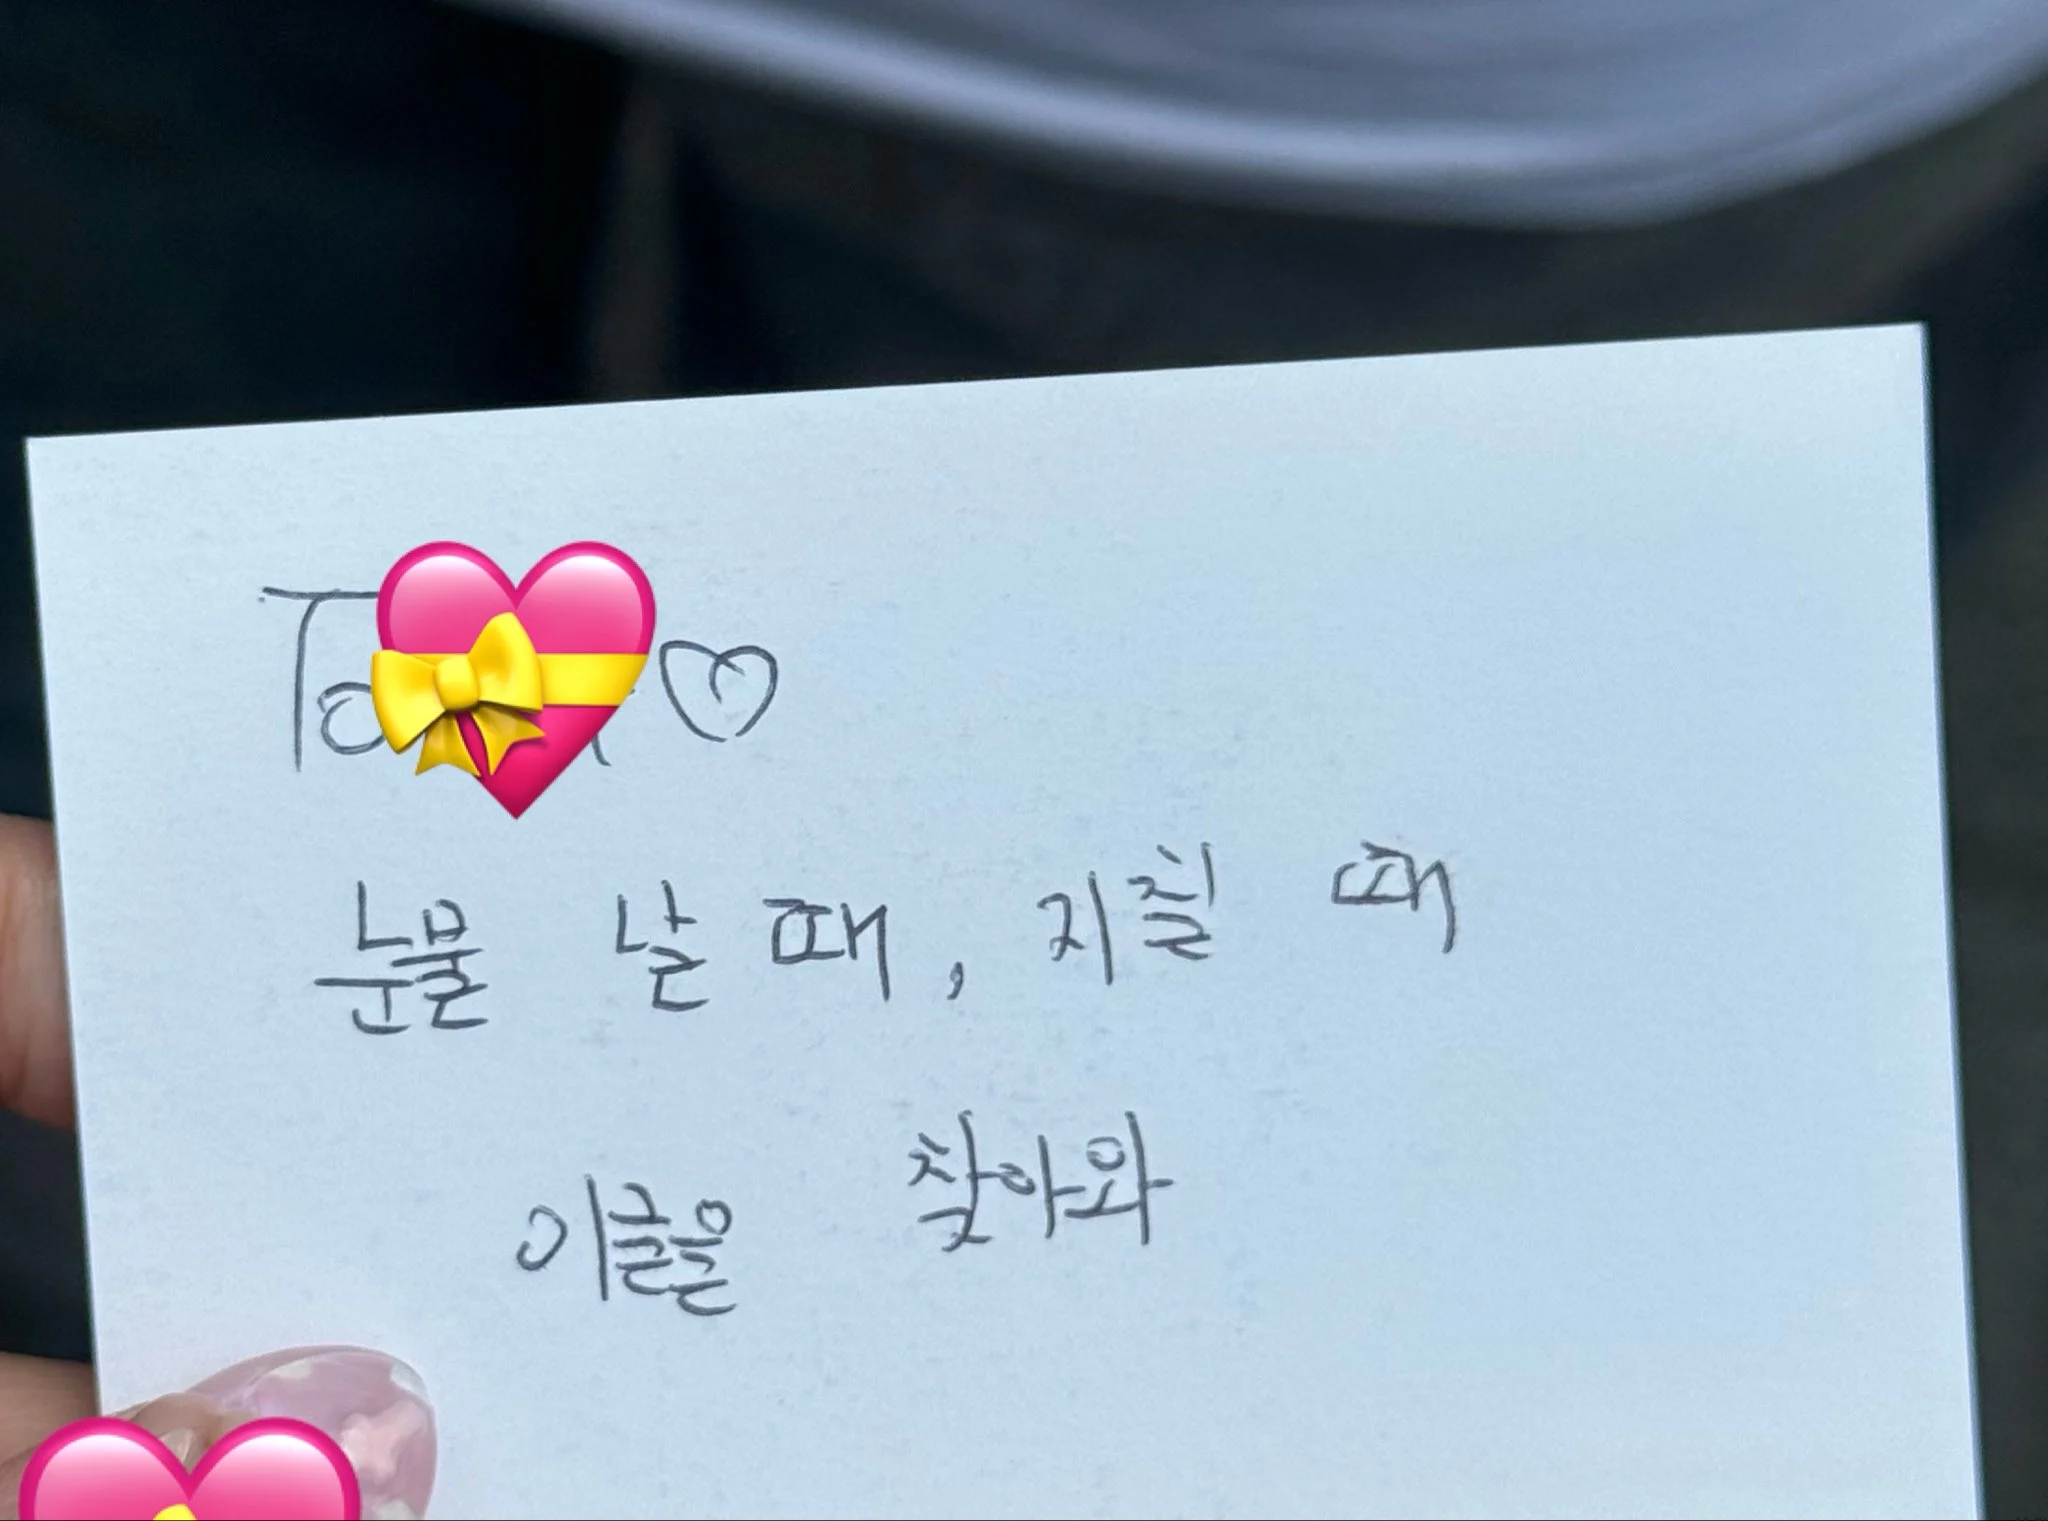 To
눈물 날 때, 지칠 때
이글을 찾아와